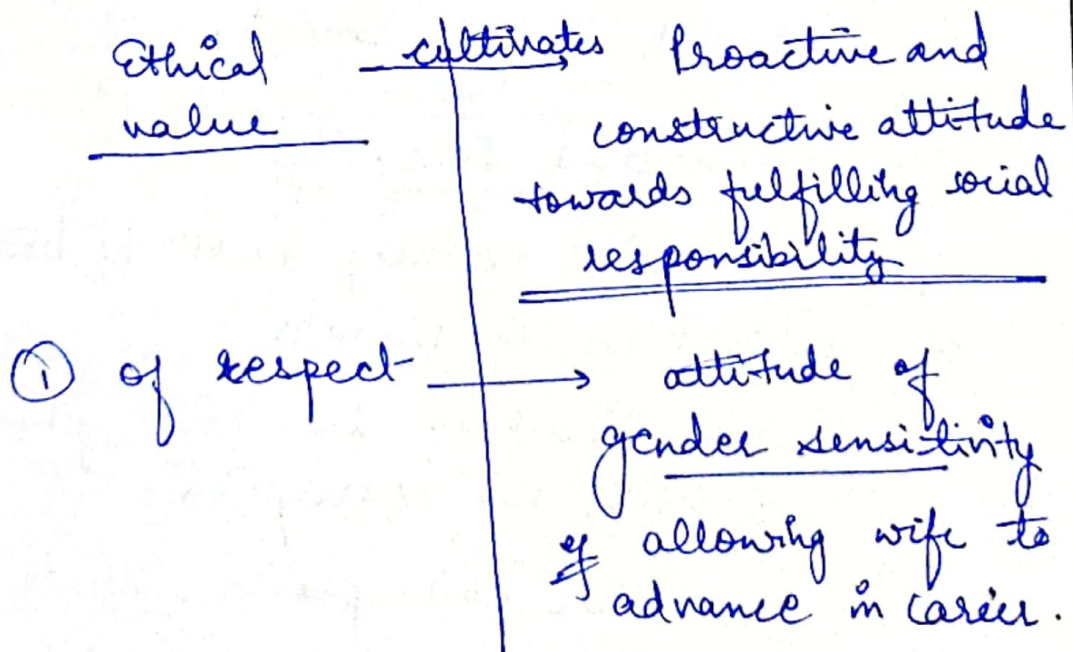 Ethical cultivates Proactive and
value constructive attitude
towards fulfilling social
responsibility
① of respect → attitude of
gender sensitivity
of allowing wife to
advance in career.